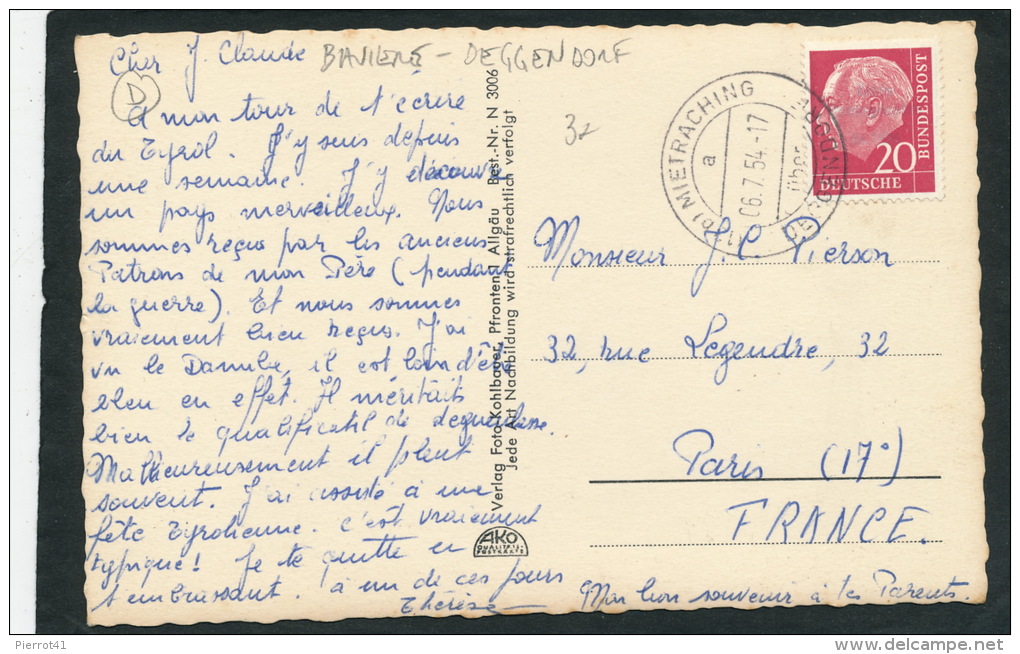 Cher J. Claude
BAVIERE - DEGGENDORF
D
A mon tour de t'écrire
du Tyrol. J'y suis depuis
une semaine. J'y découvre
un pays merveilleux. Nous
sommes reçus par les anciens
Patrons de mon Père (pendant
la guerre). Et nous sommes
vraiment bien reçus. J'ai
vu le Danube, il est loin d'être
bleu en effet. Il méritait
bien le qualificatif de degueulasse.
Malheureusement il pleut
souvent. J'ai assisté à une
fête Tyrolienne. C'est vraiment
typique! Je te quitte en
t'embrassant. à un de ces jours
Thérèse
Mon bon souvenir à tes Parents.
Verlag Foto-Kohlbauer, Pfronten i. Allgäu Best.-Nr. N 3006
Jede Art Nachbildung wird strafrechtlich verfolgt
AKO
QUALITÄTS-
POSTKARTE
32
MIETRACHING
a
06.7.54.-17
über
DEGGENDORF
20
DEUTSCHE
BUNDESPOST
Monsieur J.C. Pierson
32, rue Legendre, 32
Paris (17°)
FRANCE.
Pierrot41
www.delcampe.net